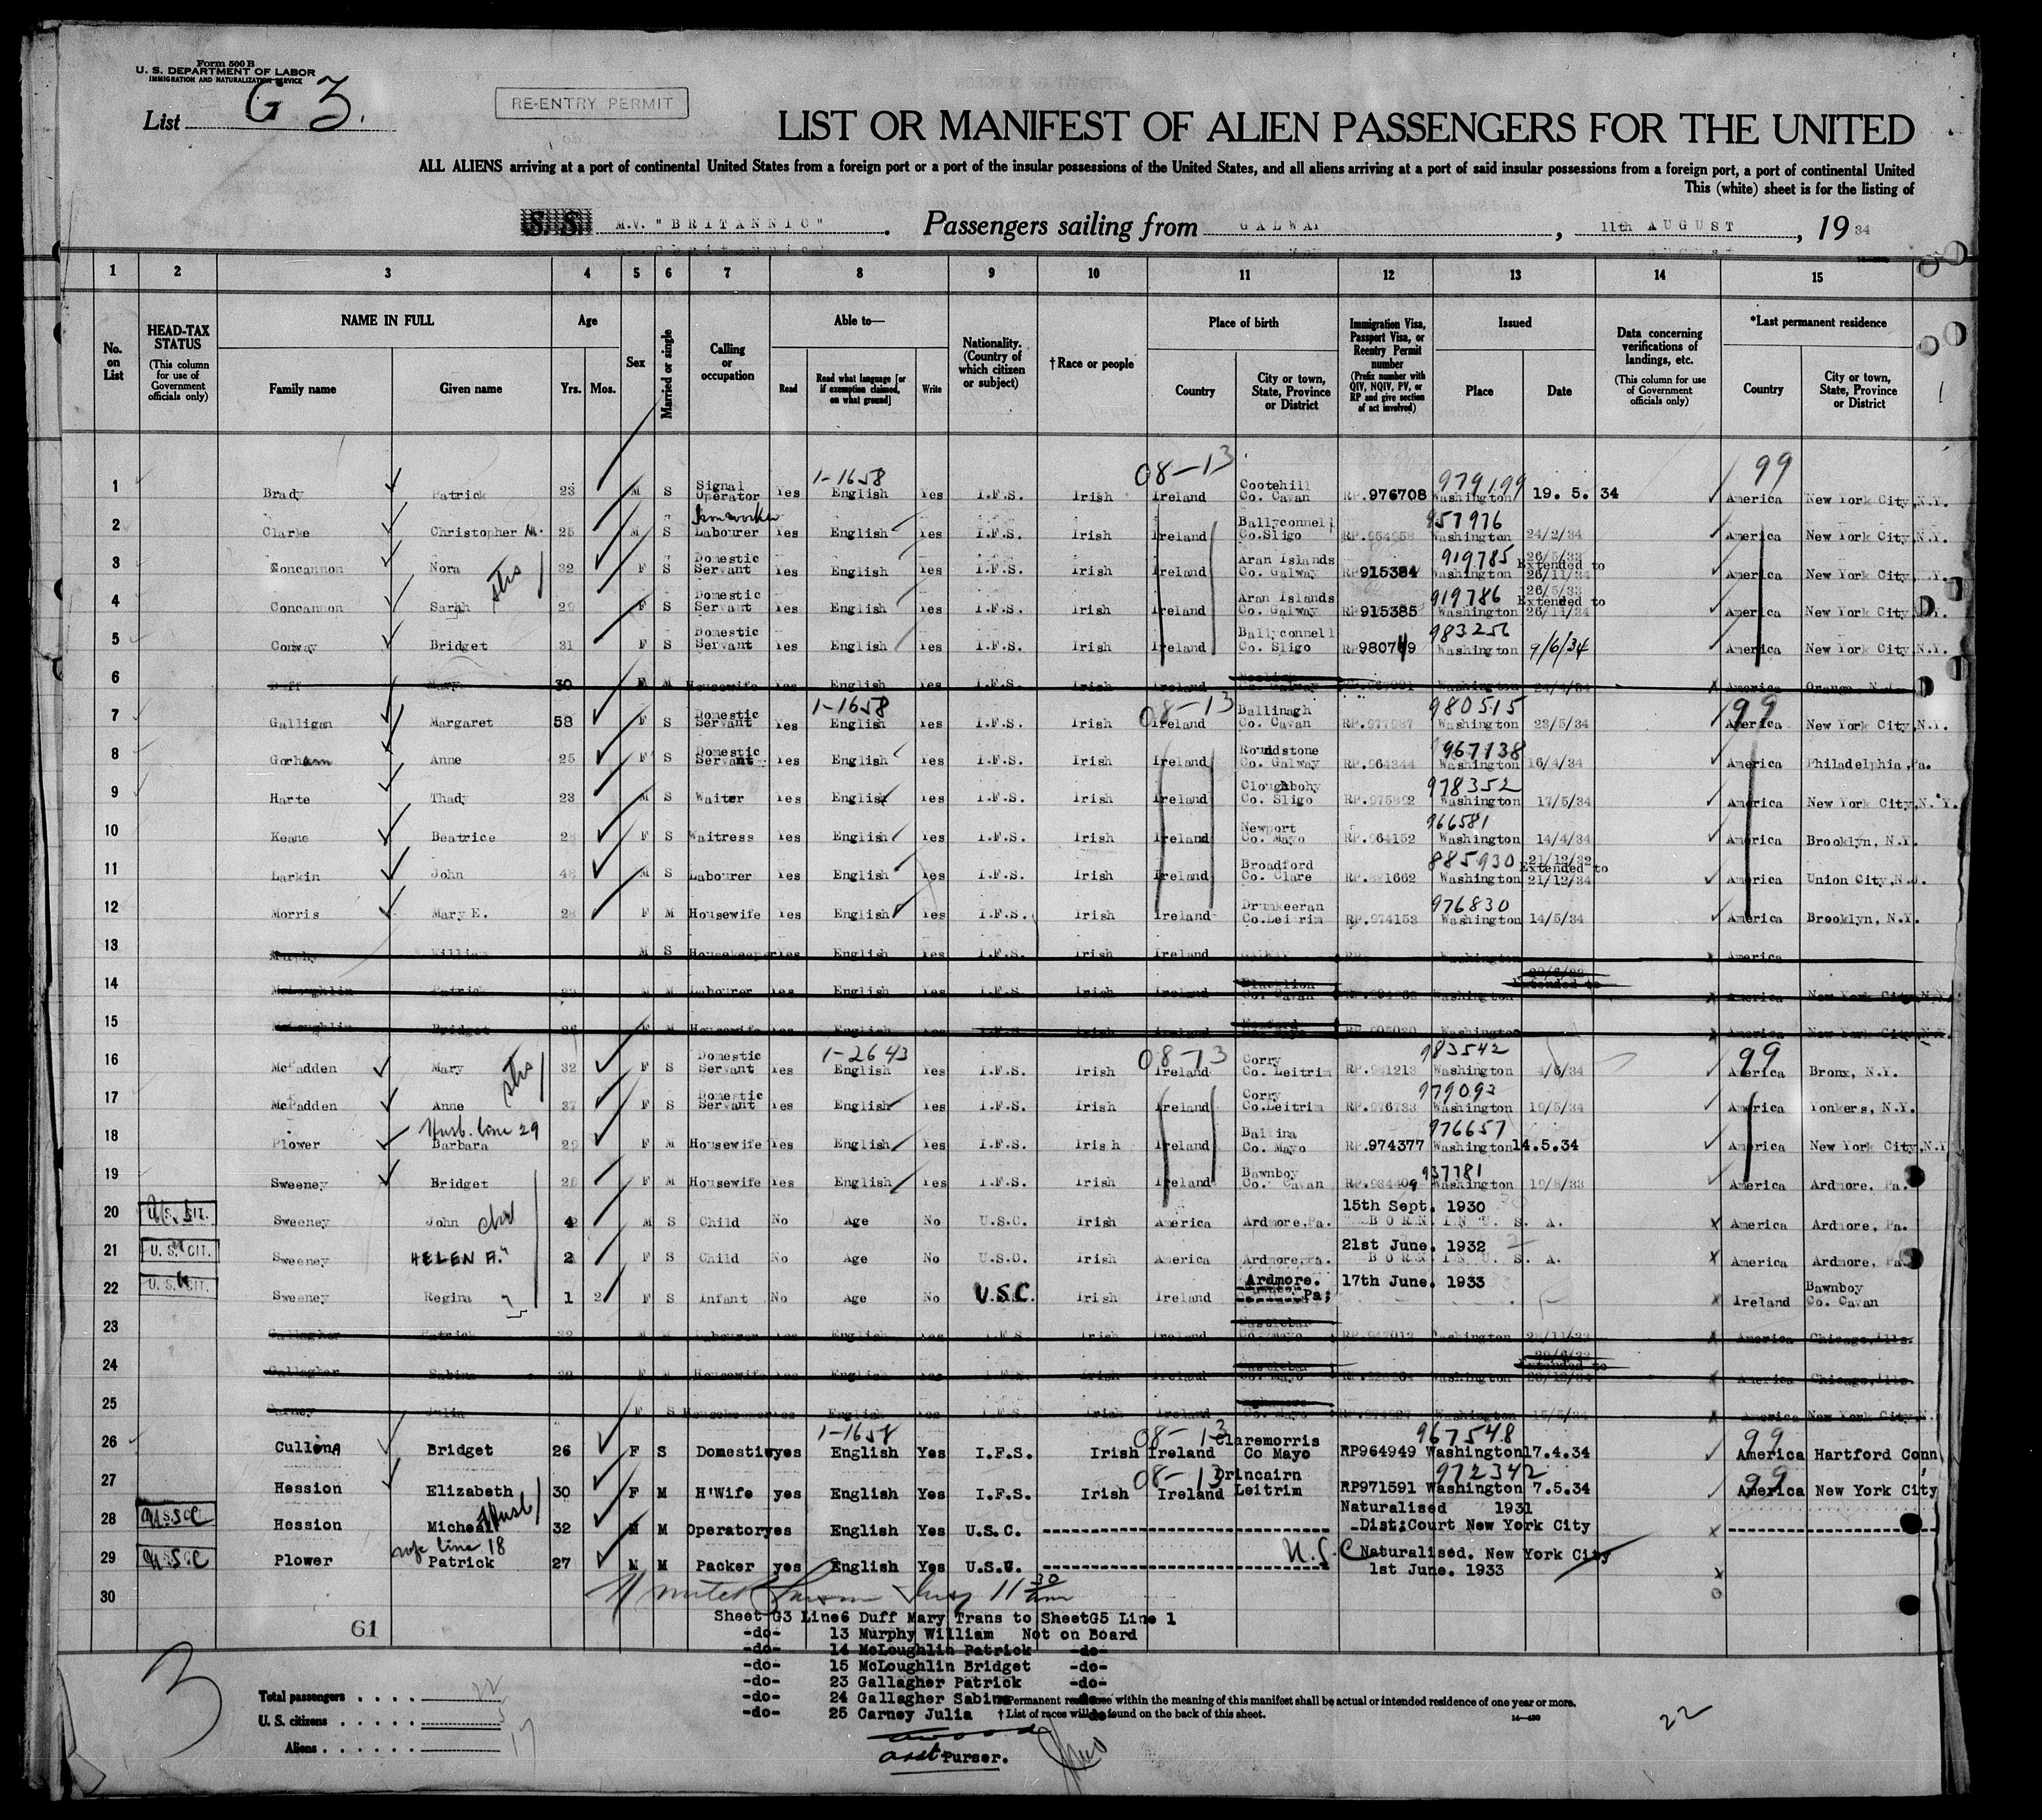 Form 500 B
U. S. DEPARTMENT OF LABOR
IMMIGRATION AND NATURALIZATION SERVICE
List G 3.
RE-ENTRY PERMIT
LIST OR MANIFEST OF ALIEN PASSENGERS FOR THE UNITED
ALL ALIENS arriving at a port of continental United States from a foreign port or a port of the insular possessions of the United States, and all aliens arriving at a port of said insular possessions from a foreign port, a port of continental United
This (white) sheet is for the listing of
S. S. M.V. "BRITANNIC". Passengers sailing from GALWAY, 11th AUGUST, 19 34
1 2 3 4 5 6 7 8 9 10 11 12 13 14 15
No. on List
HEAD-TAX STATUS (This column for use of Government officials only)
NAME IN FULL Family name Given name
Age Yrs. Mos.
Sex
Married or single
Calling or occupation
Able to— Read Read what language [or if exemption claimed, on what ground] Write
Nationality. (Country of which citizen or subject)
†Race or people
Place of birth Country City or town, State, Province or District
Immigration Visa, Passport Visa, or Reentry Permit number (Prefix number with QIV, NQIV, PV, or RP and give section of act involved)
Issued Place Date
Data concerning verifications of landings, etc. (This column for use of Government officials only)
*Last permanent residence Country City or town, State, Province or District
1-1658 08-13 979199 99
1 Brady Patrick 23 M S Signal Operator Yes English Yes I.F.S. Irish Ireland Cootehill Co. Cavan RP.976708 Washington 19. 5. 34 America New York City, N.Y.
Ironworker 957976
2 Clarke Christopher M. 25 M S Labourer Yes English Yes I.F.S. Irish Ireland Ballyconnell Co.Sligo Washington 24/2/34 America New York City, N.Y.
919785
3 Concannon Nora sts 32 F S Domestic Servant Yes English Yes I.F.S. Irish Ireland Aran Islands Co. Galway RP915384 Washington 26/5/33 Extended to 26/11/34 America New York City, N.Y.
919786
4 Concannon Sarah 29 F S Domestic Servant Yes English Yes I.F.S. Irish Ireland Aran Islands Co. Galway RP915385 Washington 26/5/33 Extended to 26/11/34 America New York City, N.Y.
983256
5 Conway Bridget 31 F S Domestic Servant Yes English Yes I.F.S. Irish Ireland Ballyconnell Co. Sligo RP980749 Washington 9/6/34 America New York City, N.Y.
6 Duff Mary 30 F M Housewife Yes English Yes I.F.S. Irish Ireland Co. Galway Washington America Orange, N.J.
1-1658 08-13 980515 99
7 Galligan Margaret 58 F S Domestic Servant Yes English Yes I.F.S. Irish Ireland Ballinagh Co. Cavan RP.977987 Washington 23/5/34 America New York City, N.Y.
967138
8 Gorham Anne 25 F S Domestic Servant Yes English Yes I.F.S. Irish Ireland Roundstone Co. Galway RP.964344 Washington 16/4/34 America Philadelphia, Pa.
978352
9 Harte Thady 23 M S Waiter Yes English Yes I.F.S. Irish Ireland Cloughbohy Co. Sligo Washington 17/5/34 America New York City, N.Y.
966581
10 Keane Beatrice 28 F S Waitress Yes English Yes I.F.S. Irish Ireland Newport Co. Mayo RP.964152 Washington 14/4/34 America Brooklyn, N.Y.
885930
11 Larkin John 48 M S Labourer Yes English Yes I.F.S. Irish Ireland Broadford Co. Clare Washington 21/12/32 Extended to 21/12/34 America Union City, N.J.
976830
12 Morris Mary E. 28 F M Housewife Yes English Yes I.F.S. Irish Ireland Drumkeeran Co.Leitrim RP.974153 Washington 14/5/34 America Brooklyn, N.Y.
13 Murphy William M S Housekeeper Yes English Yes I.F.S. Irish Ireland Washington America
14 McLoughlin Patrick M M Labourer Yes English Yes I.F.S. Irish Ireland Blacklion Co. Cavan Washington Extended to America New York City, N.Y.
15 McLoughlin Bridget F M Housewife Yes English Yes I.F.S. Irish Ireland Washington America New York City, N.Y.
1-2643 08-13 983542 99
16 McPadden Mary sts 32 F S Domestic Servant Yes English Yes I.F.S. Irish Ireland Corry Co. Leitrim RP.981213 Washington 4/6/34 America Bronx, N.Y.
979092
17 McPadden Anne 37 F S Domestic Servant Yes English Yes I.F.S. Irish Ireland Corry Co.Leitrim RP.976733 Washington 19/5/34 America Yonkers, N.Y.
Husb. line 29 976657
18 Plower Barbara 29 F M Housewife Yes English Yes I.F.S. Irish Ireland Ballina Co. Mayo RP.974377 Washington 14.5.34 America New York City, N.Y.
937781
19 Sweeney Bridget F M Housewife Yes English Yes I.F.S. Irish Ireland Bawnboy Co. Cavan Washington 19/8/33 America Ardmore, Pa.
20 U.S. CIT. Sweeney John 4 M S Child No Age No U.S.C. Irish America Ardmore, Pa. 15th Sept. 1930 BORN IN U. S. A. America Ardmore, Pa.
21 U.S. CIT. Sweeney HELEN A. 2 F S Child No Age No U.S.C. Irish America Ardmore, Pa. 21st June. 1932 BORN IN U. S. A. America Ardmore, Pa.
22 U.S. CIT. Sweeney Regina 1 2 F S Infant No Age No U.S.C. Irish Ireland Ardmore. Pa; 17th June. 1933 Ireland Bawnboy Co. Cavan
23 Gallagher Patrick 32 M M Labourer Yes English Yes I.F.S. Irish Ireland Castlebar Co. Mayo Washington America Chicago, Ills.
24 Gallagher Sabina F M Housewife Yes English Yes I.F.S. Irish Ireland Castlebar Co. Mayo Washington Extended to America Chicago, Ills.
25 Carney Julia F S Housekeeper Yes English Yes I.F.S. Irish Ireland Co. Mayo Washington 15/5/34 America New York City, N.Y.
1-1658 08-13 967548 99
26 Cullen Bridget 26 F S Domestic yes English Yes I.F.S. Irish Ireland Claremorris Co Mayo RP964949 Washington 17.4.34 America Hartford Conn,
08-13 972342 99
27 Hession Elizabeth 30 F M H'Wife yes English Yes I.F.S. Irish Ireland Drincairn Leitrim RP971591 Washington 7.5.34 America New York City
28 U.S.C Hession Micheal Husb 32 M M Operator yes English Yes U.S.C. Naturalised 1931 Dist; Court New York City
wife line 18
29 U.S.C Plower Patrick 27 M M Packer yes English Yes U.S.C. U.S.C Naturalised. New York City 1st June. 1933
30
11 30 am
61
Sheet G3 Line6 Duff Mary Trans to SheetG5 Line 1
-do- 13 Murphy William Not on Board
-do- 14 McLoughlin Patrick -do-
-do- 15 McLoughlin Bridget -do-
-do- 23 Gallagher Patrick -do-
-do- 24 Gallagher Sabina -do-
-do- 25 Carney Julia -do-
3
Total passengers 22
U. S. citizens 5
Aliens 17
*Permanent residence within the meaning of this manifest shall be actual or intended residence of one year or more.
†List of races will be found on the back of this sheet.
14—430
22
asst Purser.